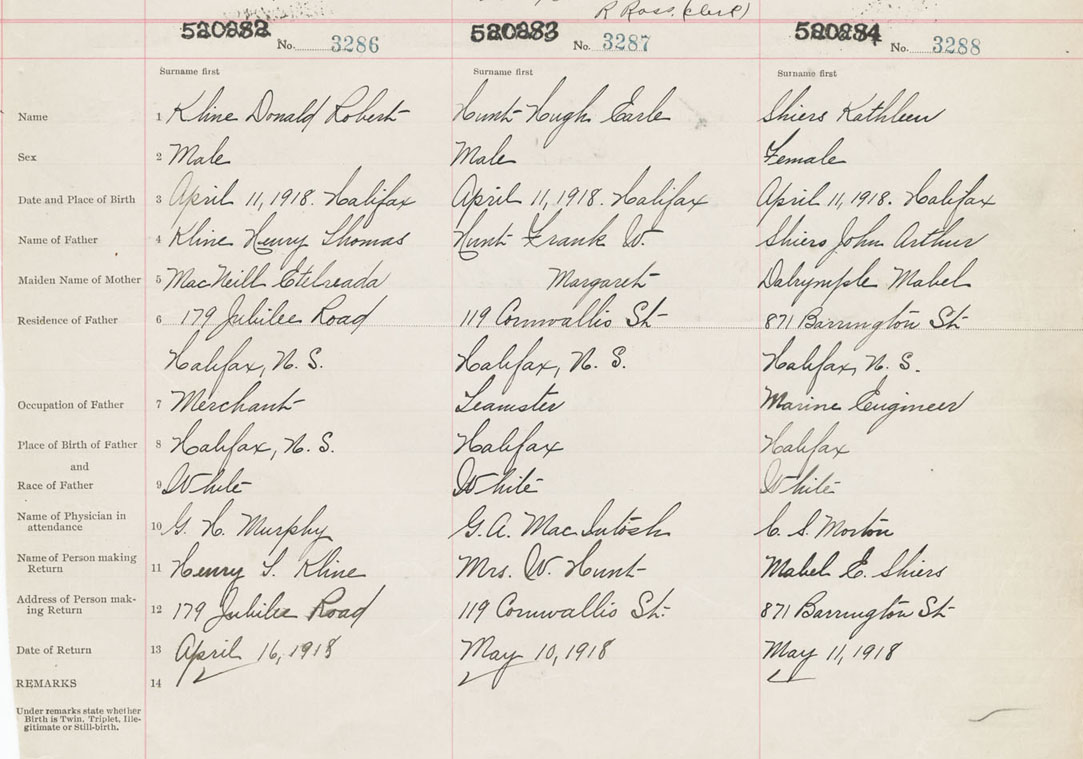 R Ross. (clerk)
520282 No. 3286 520283 No. 3287 520284 No. 3288
Surname first Surname first Surname first
Name 1 Kline Donald Robert Hunt Hugh Earle Shiers Kathleen
Sex 2 Male Male Female
Date and Place of Birth 3 April 11, 1918. Halifax April 11, 1918. Halifax April 11, 1918. Halifax
Name of Father 4 Kline Henry Thomas Hunt Frank W. Shiers John Arthur
Maiden Name of Mother 5 MacNeill Etelreada Margaret Dalrymple Mabel
Residence of Father 6 179 Jubilee Road 119 Cornwallis St. 871 Barrington St.
Halifax, N. S. Halifax, N. S. Halifax, N. S.
Occupation of Father 7 Merchant Teamster Marine Engineer
Place of Birth of Father 8 Halifax, N. S. Halifax Halifax
and
Race of Father 9 White White White
Name of Physician in
attendance 10 G. H. Murphy G. A. MacIntosh C. S. Morton
Name of Person making
Return 11 Henry T. Kline Mrs. W. Hunt Mabel E. Shiers
Address of Person mak-
ing Return 12 179 Jubilee Road 119 Cornwallis St. 871 Barrington St
Date of Return 13 April 16, 1918 May 10, 1918 May 11, 1918
REMARKS 14
Under remarks state whether
Birth is Twin, Triplet, Ille-
gitimate or Still-birth.